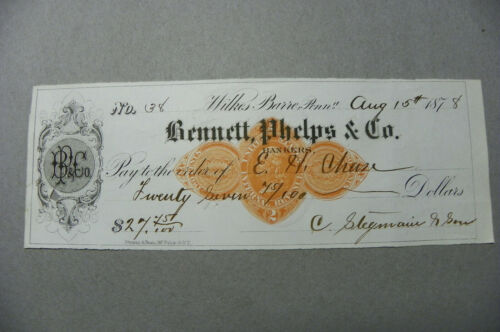 No. 38 Wilkes Barre, Penna Aug 15th 1878
Bennett, Phelps & Co.
BANKERS
BP&Co.
Pay to the order of E. H. Chase
Twenty Seven 75/100 Dollars
$27.75/100 C. Stegmaier & Son
2